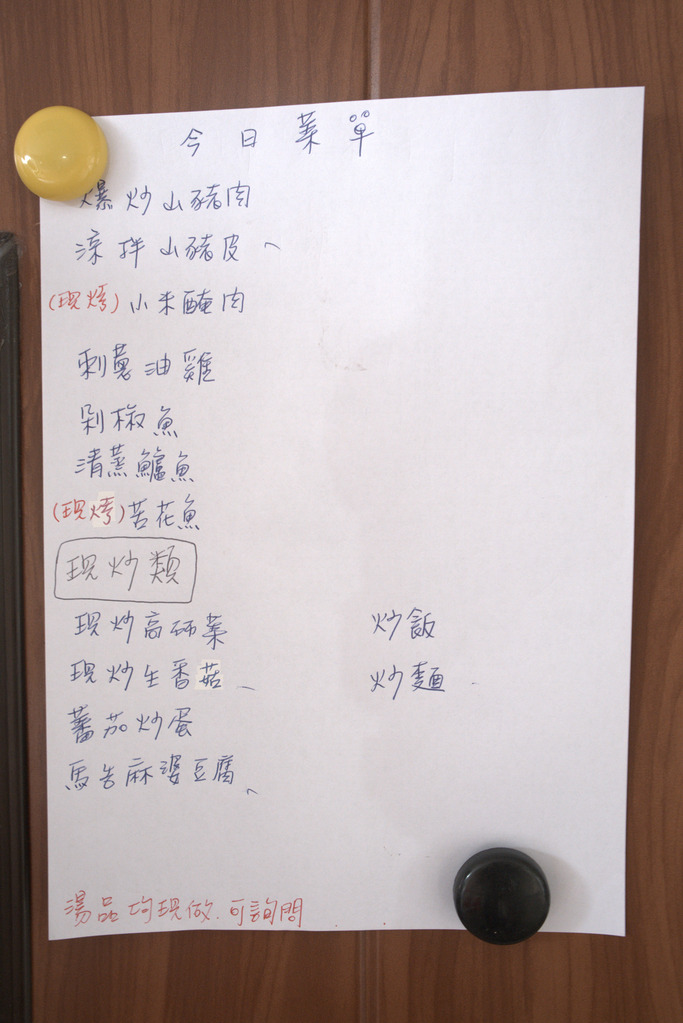 今日菜單
爆炒山豬肉
涼拌山豬皮
(現烤)小米醃肉
刺蔥油雞
剁椒魚
清蒸鱸魚
(現烤)苦花魚
現炒類
現炒高麗菜
現炒生香菇
蕃茄炒蛋
馬告麻婆豆腐
炒飯
炒麵
湯品均現做.可詢問